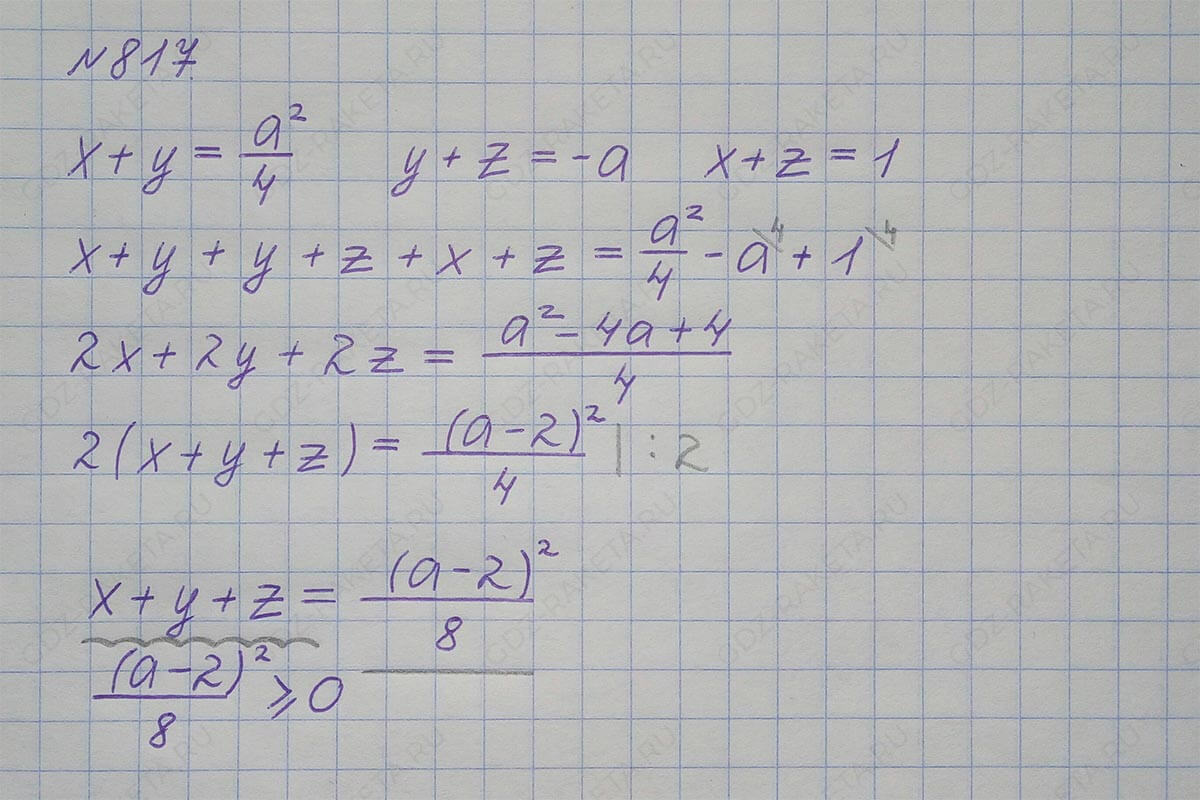 №817
x + y = a²/4 y + z = -a x + z = 1
x + y + y + z + x + z = a²/4 - a\4 + 1\4
2x + 2y + 2z = (a² - 4a + 4)/4
2(x + y + z) = (a - 2)²/4 | : 2
x + y + z = (a - 2)²/8
(a - 2)²/8 ⩾ 0
GDZ-RAKETA.RU